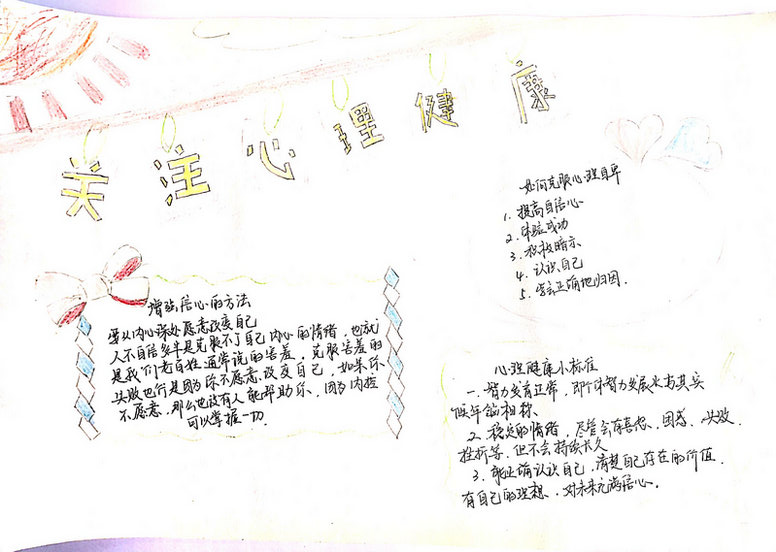 关注心理健康
如何克服心理自卑
1. 提高自信心
2. 体验成功
3. 积极暗示
4. 认识自己
5. 学会正确地归因.
增强信心的方法
要从内心深处愿意改变自己
人不自信多半是克服不了自己内心的情绪，也就
是我们老百姓通常说的害羞，克服害羞的
失败也许是因为你不愿意改变自己，如果你
不愿意，那么也没有人能帮助你，因为内控
可以掌握一切.
心理健康小标准
一、智力发育正常，即个体智力发展水与其实
际年龄相称
2. 稳定的情绪，尽管会有悲想、困惑、失败
挫折等，但不会持续长久
3. 能正确认识自己，清楚自己存在的价值，
有自己的理想，对未来充满信心.